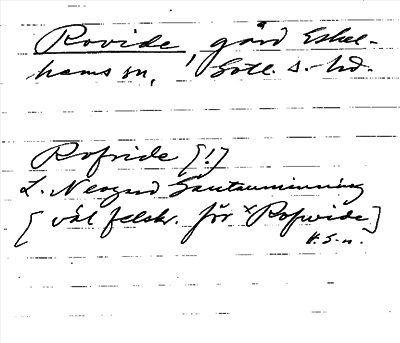 Rovide, gård Eskel-
hems sn, Gotl. s. hd.
Rofride [!]
L. Neogard Gautauminning
[väl felskr. för ˣRofwide]
H. S-n.